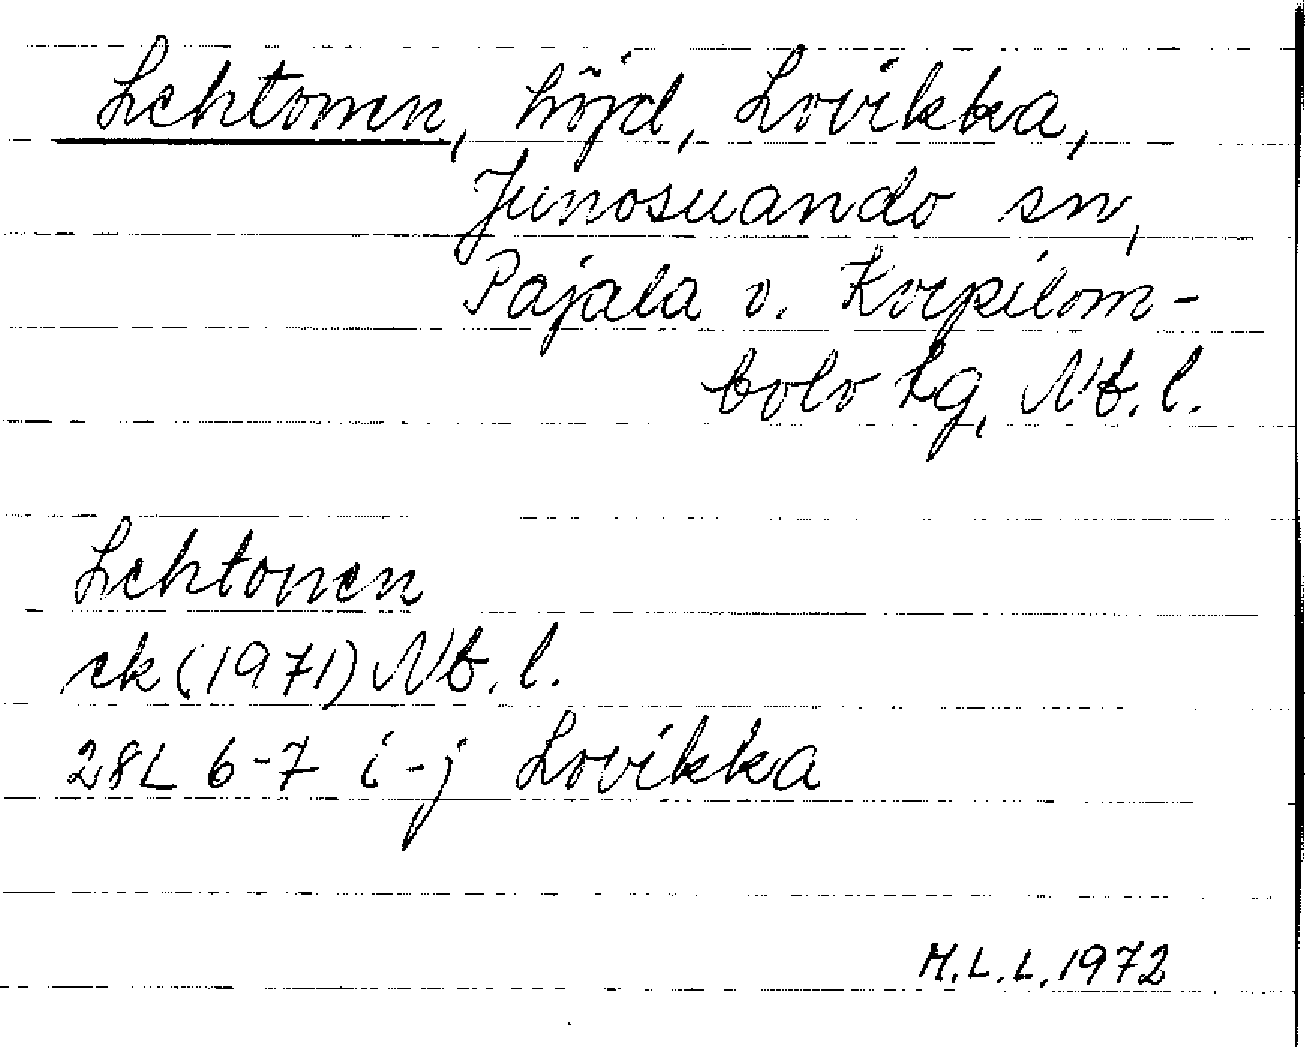 Lehtonen, höjd, Lovikka,
Junosuando sn,
Pajala o. Korpilom-
bolo tg, Nb. l.
Lehtonen
ek (1971) Nb. l.
28L 6-7 i-j Lovikka
M.L.L. 1972